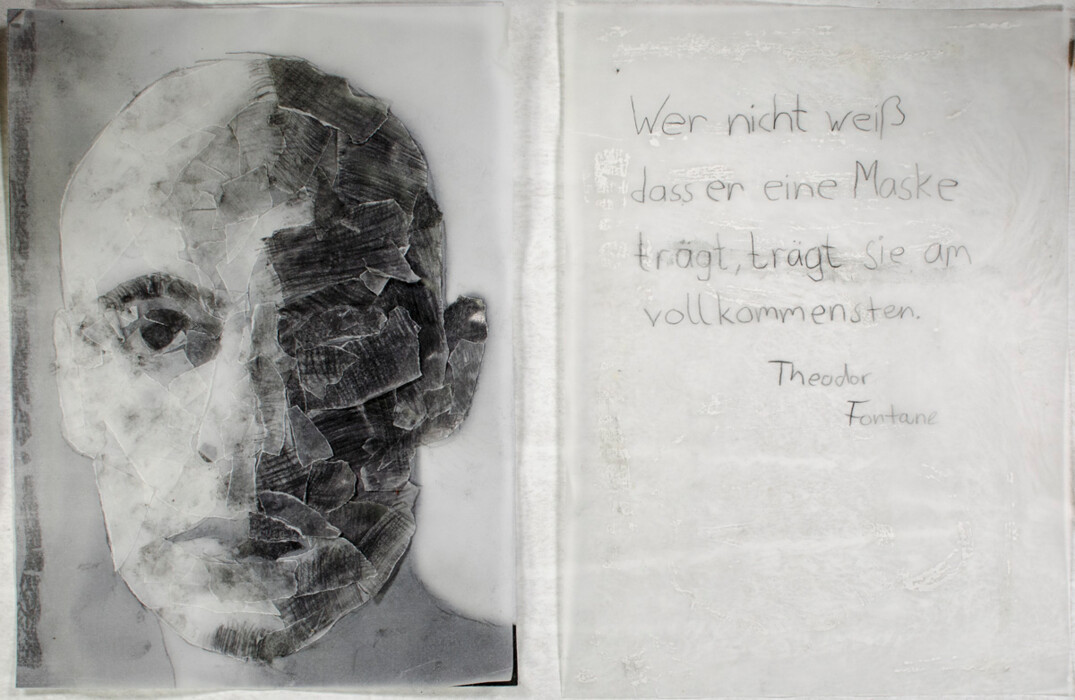 Wer nicht weiß
dass er eine Maske
trägt, trägt sie am
vollkommensten.
Theodor
Fontane